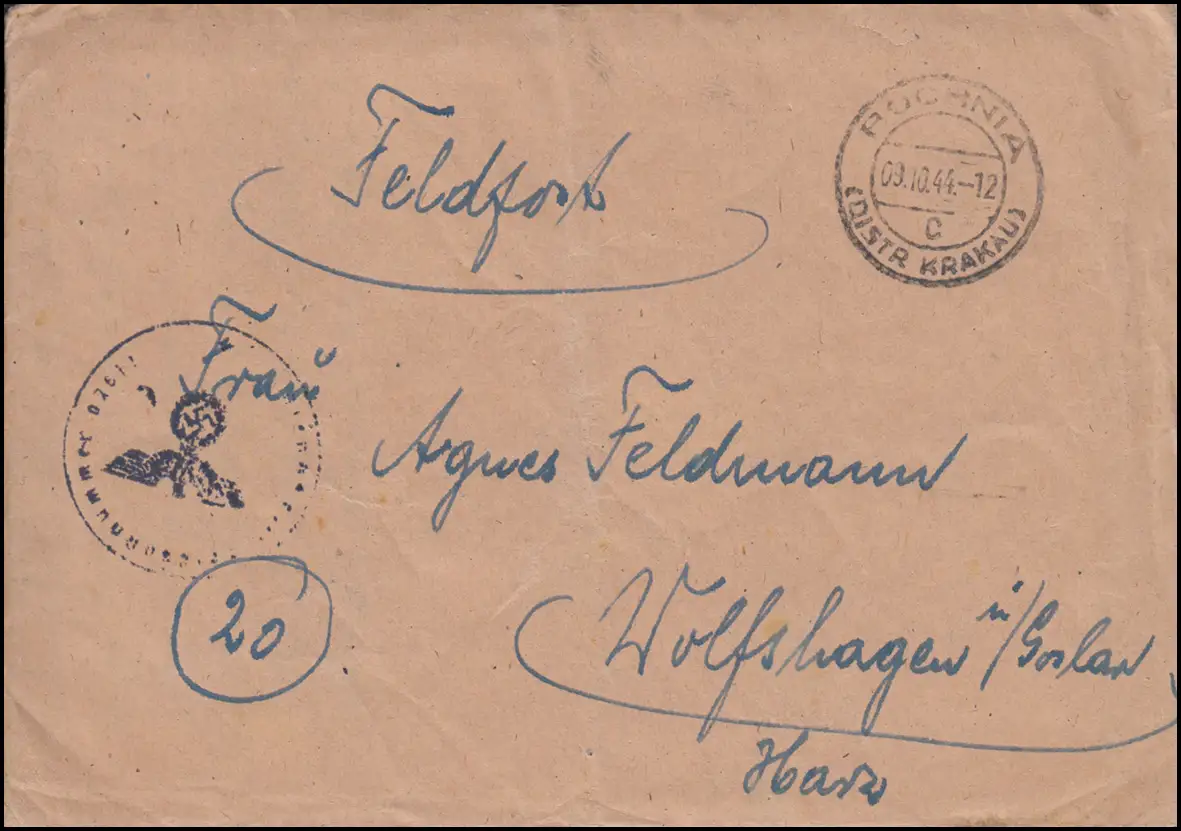 Feldpost
BOCHNIA
09.10.44.-12
c
(DISTR KRAKAU)
Frau
Agnes Feldmann
20
Wolfshagen /Goslar
Harz